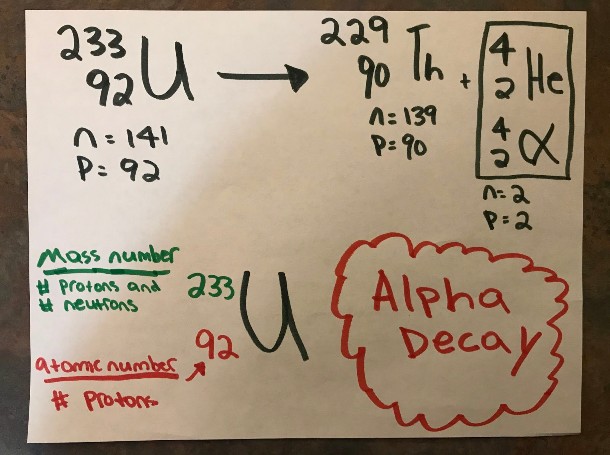 233 92 U → 229 90 Th + 4 2 He
4 2 α
n = 141
p = 92
n = 139
p = 90
n = 2
p = 2
Mass number
# protons and
# neutrons
atomic number
# protons
233 92 U
Alpha
Decay